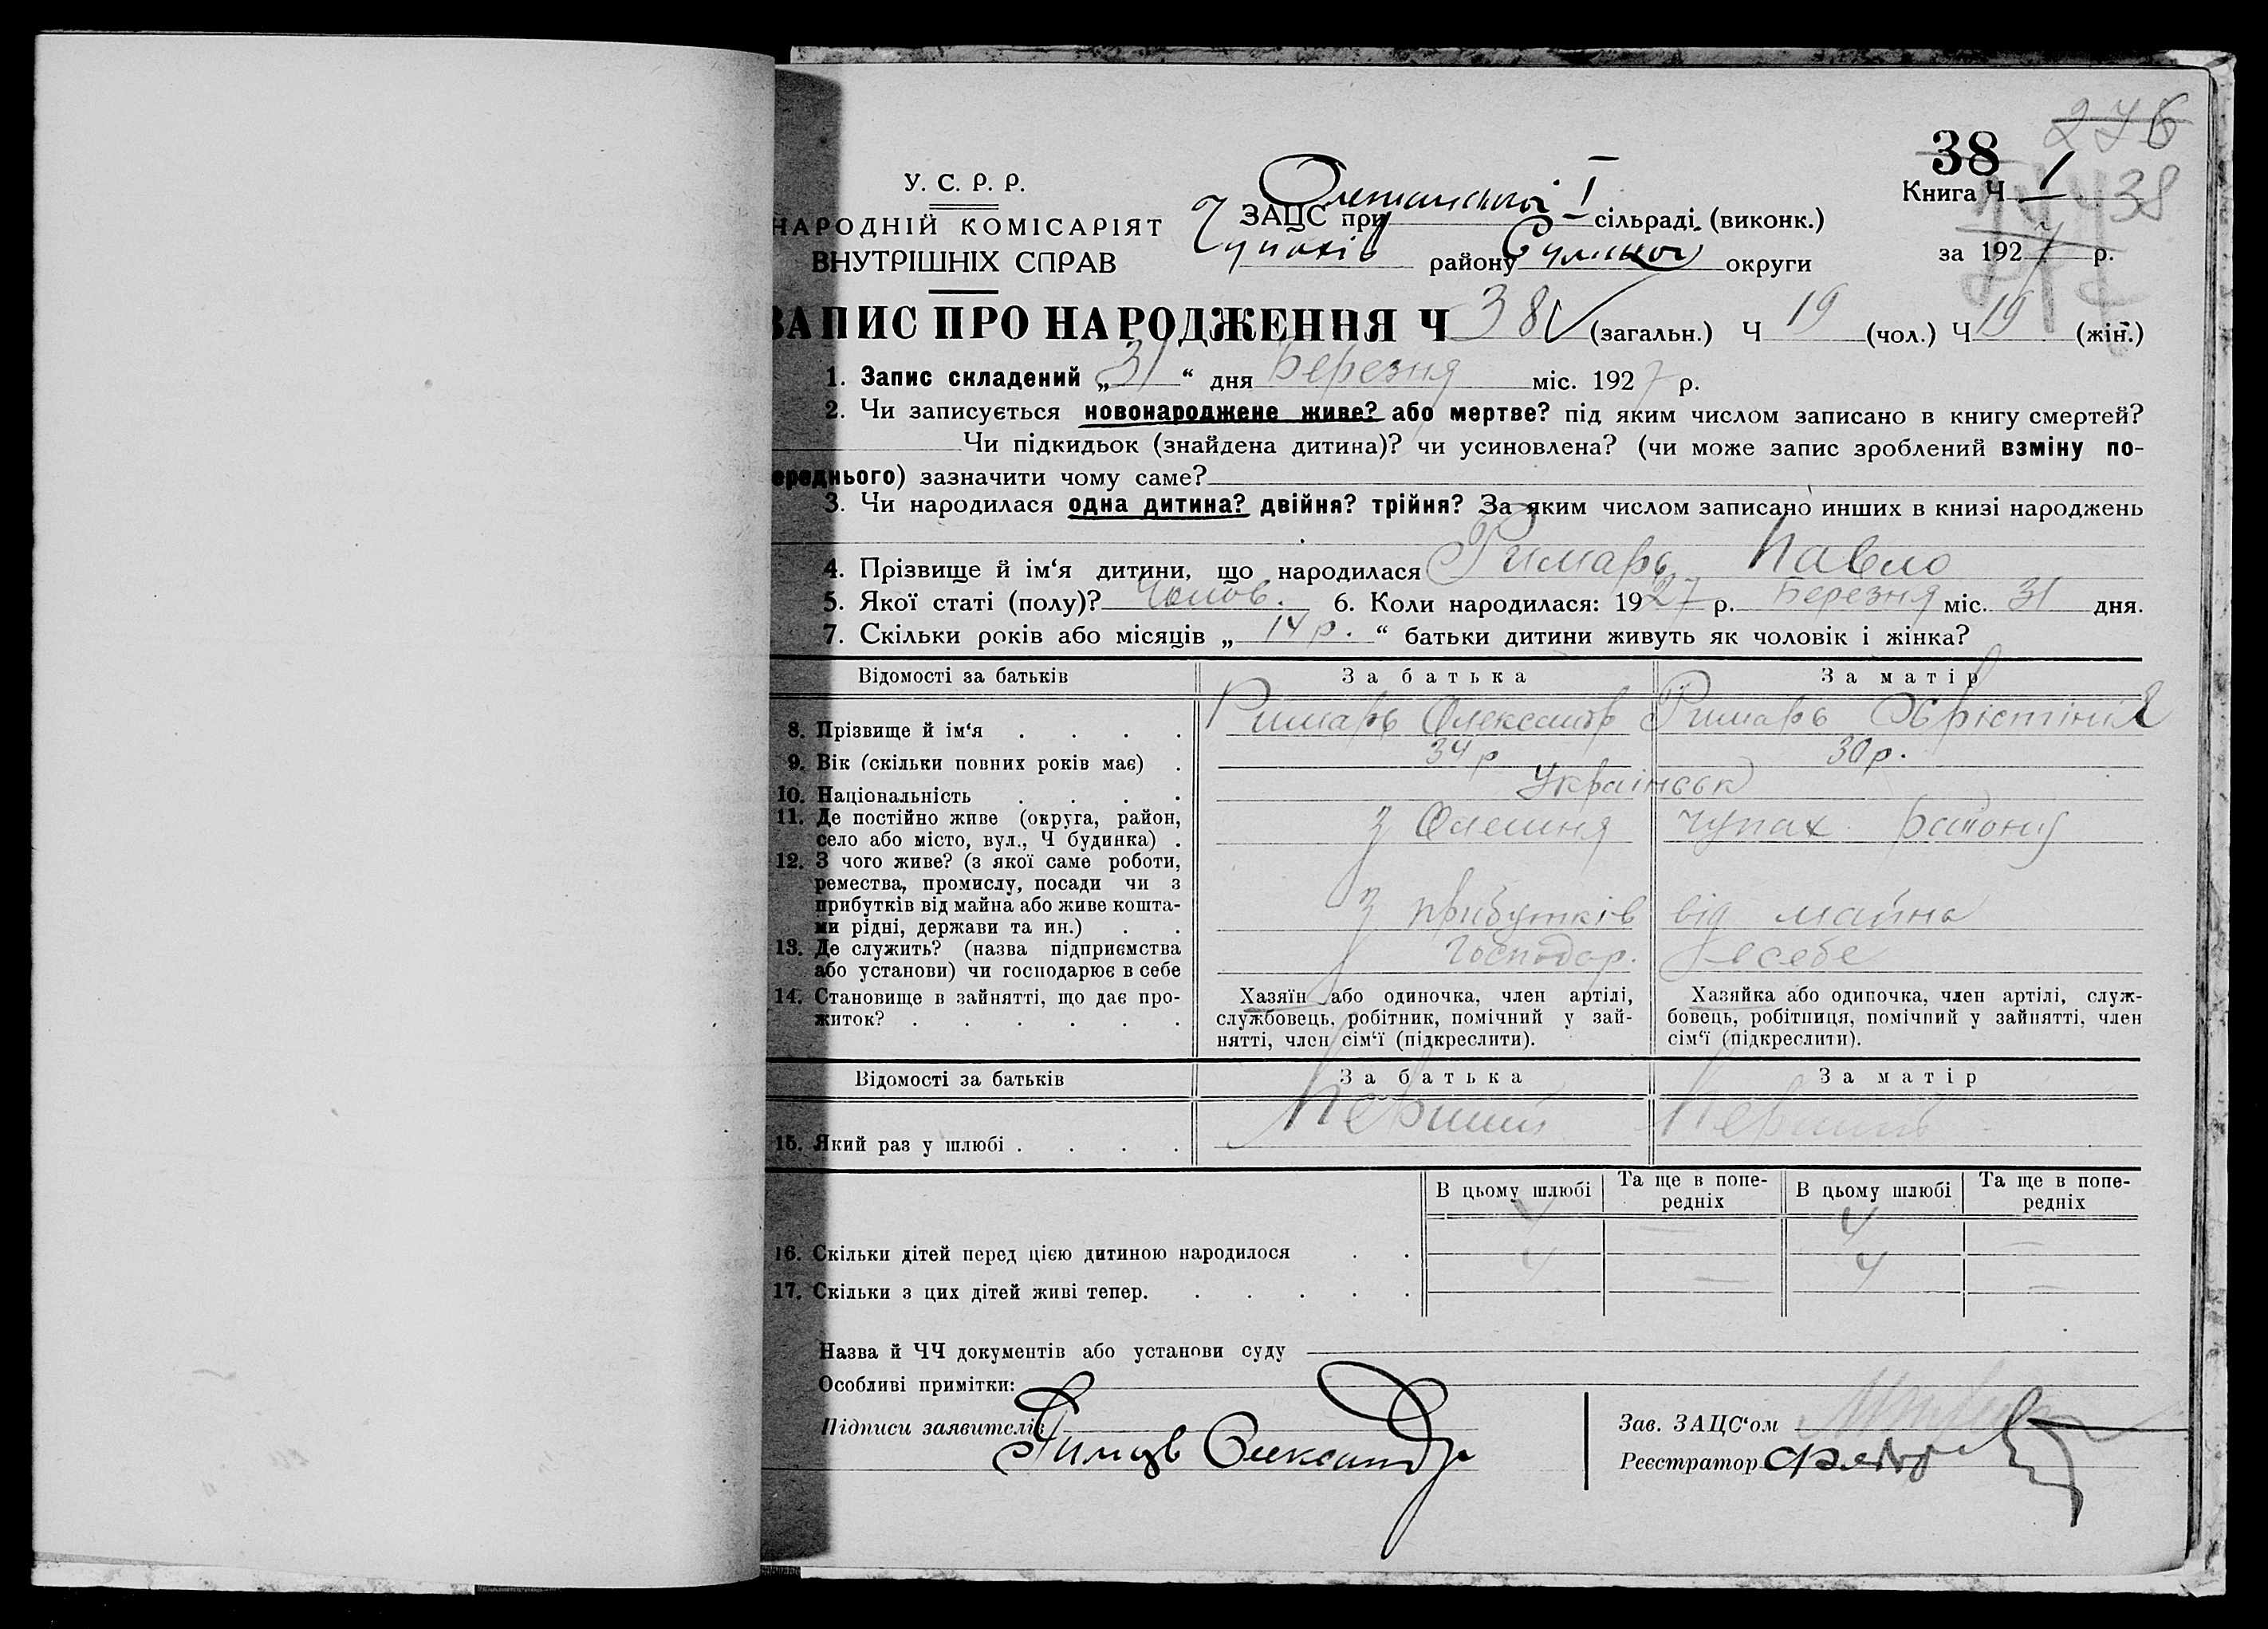 276
38
Книга Ч 1 38
У. С. Р. Р.
НАРОДНІЙ КОМІСАРІЯТ
ВНУТРІШНІХ СПРАВ
ЗАЦС при I сільраді (виконк.)
Чупахів району Сумської округи
за 1927 р.
ЗАПИС ПРО НАРОДЖЕННЯ Ч 38 (загальн.) Ч 19 (чол.) Ч 19 (жін.)
1. Запис складений „31“ дня Березня міс. 1927 р.
2. Чи записується новонароджене живе? або мертве? під яким числом записано в книгу смертей?
Чи підкидьок (знайдена дитина)? чи усиновлена? (чи може запис зроблений взміну по-
ереднього) зазначити чому саме?
3. Чи народилася одна дитина? двійня? трійня? За яким числом записано инших в книзі народжень
4. Прізвище й ім‘я дитини, що народилася Римарь Павло
5. Якої статі (полу)? Чолов. 6. Коли народилася: 1927 р. Березня міс. 31 дня.
7. Скільки років або місяців „14 р.“ батьки дитини живуть як чоловік і жінка?
Відомості за батьків За батька За матір
8. Прізвище й ім‘я . . . . Римарь Олександр Римарь
9. Вік (скільки повних років має) . 34 р 30 р.
10. Національність . . . . Українськ
11. Де постійно живе (округа, район,
село або місто, вул., Ч будинка) . з Олешня чупах. району
12. З чого живе? (з якої саме роботи,
ремества, промислу, посади чи з
прибутків від майна або живе кошта-
ми рідні, держави та ин.) . . з прибутків від майна
13. Де служить? (назва підприємства
або установи) чи господарює в себе господар. в себе
14. Становище в зайнятті, що дає про-
житок? . . . . . .
Хазяїн або одиночка, член артілі,
службовець, робітник, помічний у зай-
нятті, член сім‘ї (підкреслити).
Хазяйка або одиночка, член артілі, служ-
бовець, робітниця, помічний у зайнятті, член
сім‘ї (підкреслити).
Відомості за батьків За батька За матір
15. Який раз у шлюбі . . . . Перший Перший
В цьому шлюбі Та ще в попе-
редніх В цьому шлюбі Та ще в попе-
редніх
16. Скільки дітей перед цією дитиною народилося . . 4 — 4 —
17. Скільки з цих дітей живі тепер. . . . . . 4 — 4 —
Назва й ЧЧ документів або установи суду
Особливі примітки:
Підписи заявителів
Римарь Олександр
Зав. ЗАЦС‘ом
Реєстратор